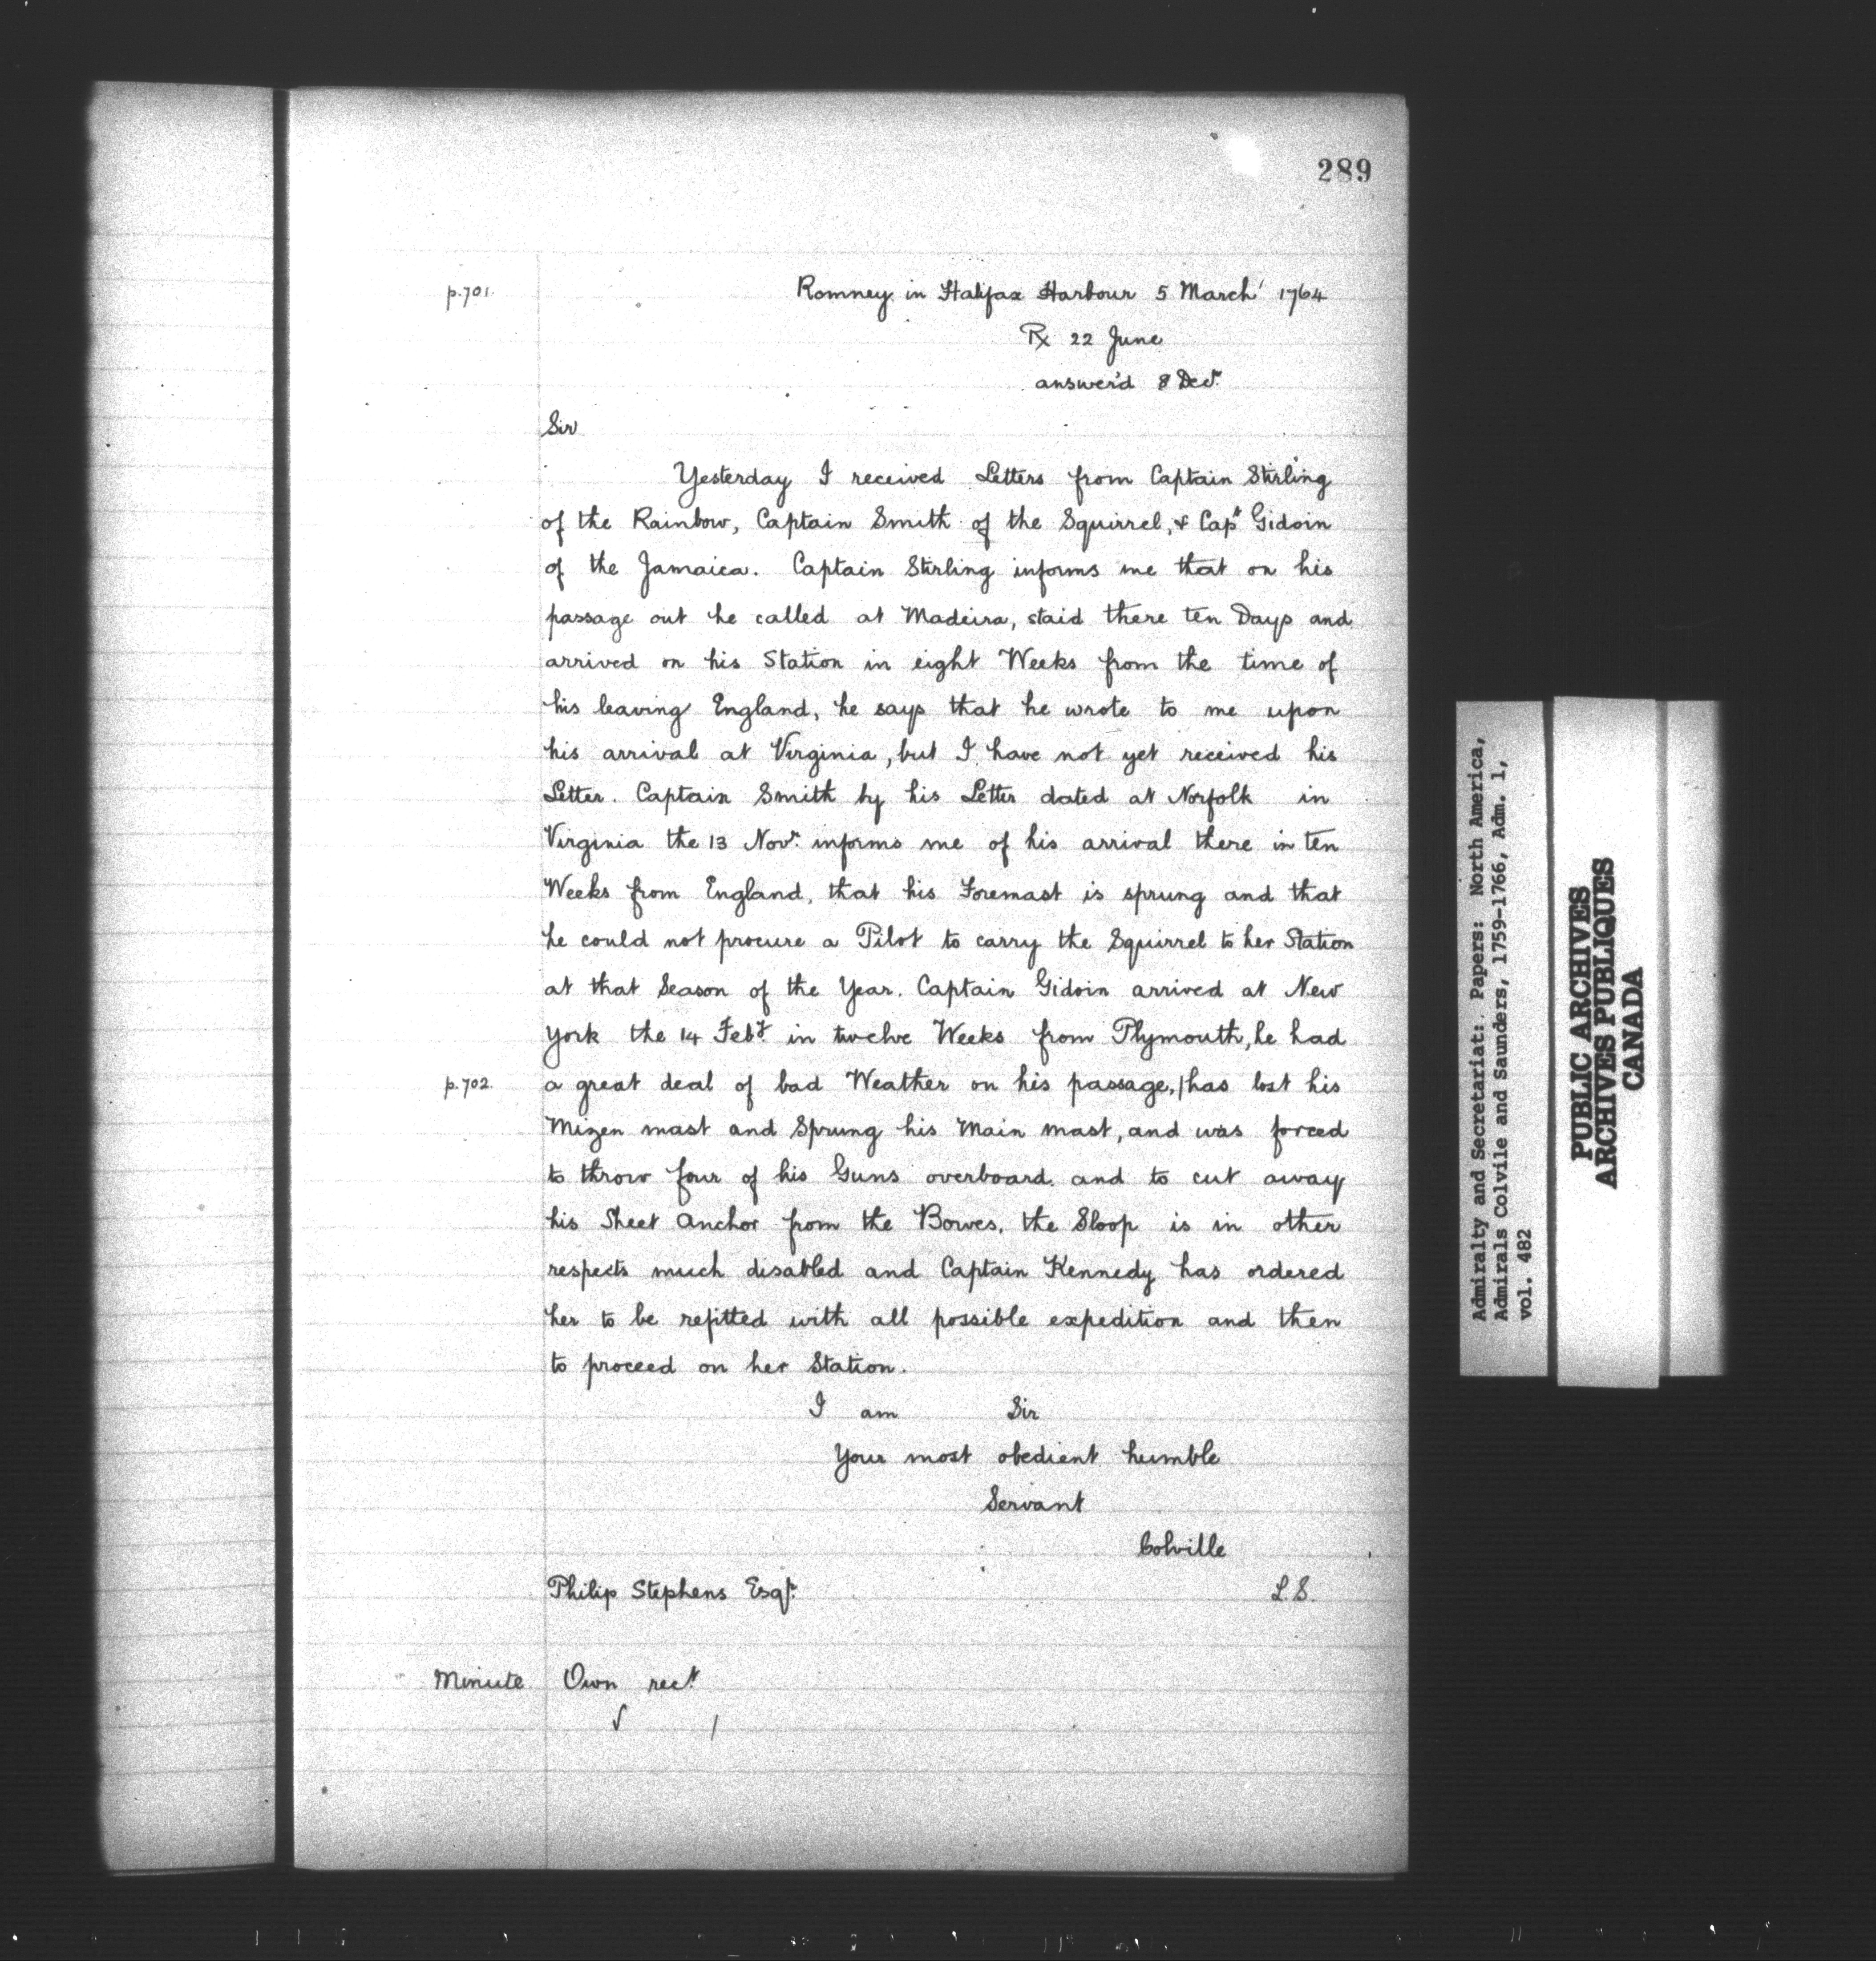 289
p.701.
Romney in Halifax Harbour 5 March 1764
Rx 22 June
answer'd 8 Decr.
Sir
Yesterday I received Letters from Captain Stirling
of the Rainbow, Captain Smith of the Squirrel, & Capt Gidoin
of the Jamaica. Captain Stirling informs me that on his
passage out he called at Madeira, staid there ten Days and
arrived on his Station in eight Weeks from the time of
his leaving England, he says that he wrote to me upon
his arrival at Virginia, but I have not yet received his
Letter. Captain Smith by his Letter dated at Norfolk in
Virginia the 13 Novr. informs me of his arrival there in ten
Weeks from England, that his Foremast is sprung and that
he could not procure a Pilot to carry the Squirrel to her Station
at that Season of the Year. Captain Gidoin arrived at New
York the 14 Feby. in twelve Weeks from Plymouth, he had
p.702.
a great deal of bad Weather on his passage, | has lost his
Mizen mast and Sprung his Main mast, and was forced
to throw four of his Guns overboard. and to cut away
his Sheet Anchor from the Bowes, the Sloop is in other
respects much disabled and Captain Kennedy has ordered
her to be refitted with all possible expedition and then
to proceed on her Station.
I am Sir
Your most obedient humble
Servant
Colville
Philip Stephens Esqr.
L.S.
Minute Own rect.
Admiralty and Secretariat: Papers: North America,
Admirals Colvile and Saunders, 1759-1766, Adm. 1,
vol. 482
PUBLIC ARCHIVES
ARCHIVES PUBLIQUES
CANADA